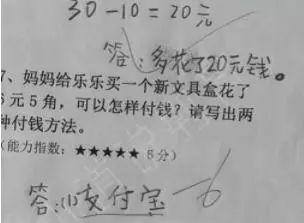 30-10=20元
答:多花了20元钱。
7、妈妈给乐乐买一个新文具盒花了
6元5角,可以怎样付钱?请写出两
种付钱方法。
(能力指数:★★★★★ 5分)
答:(1)支付宝